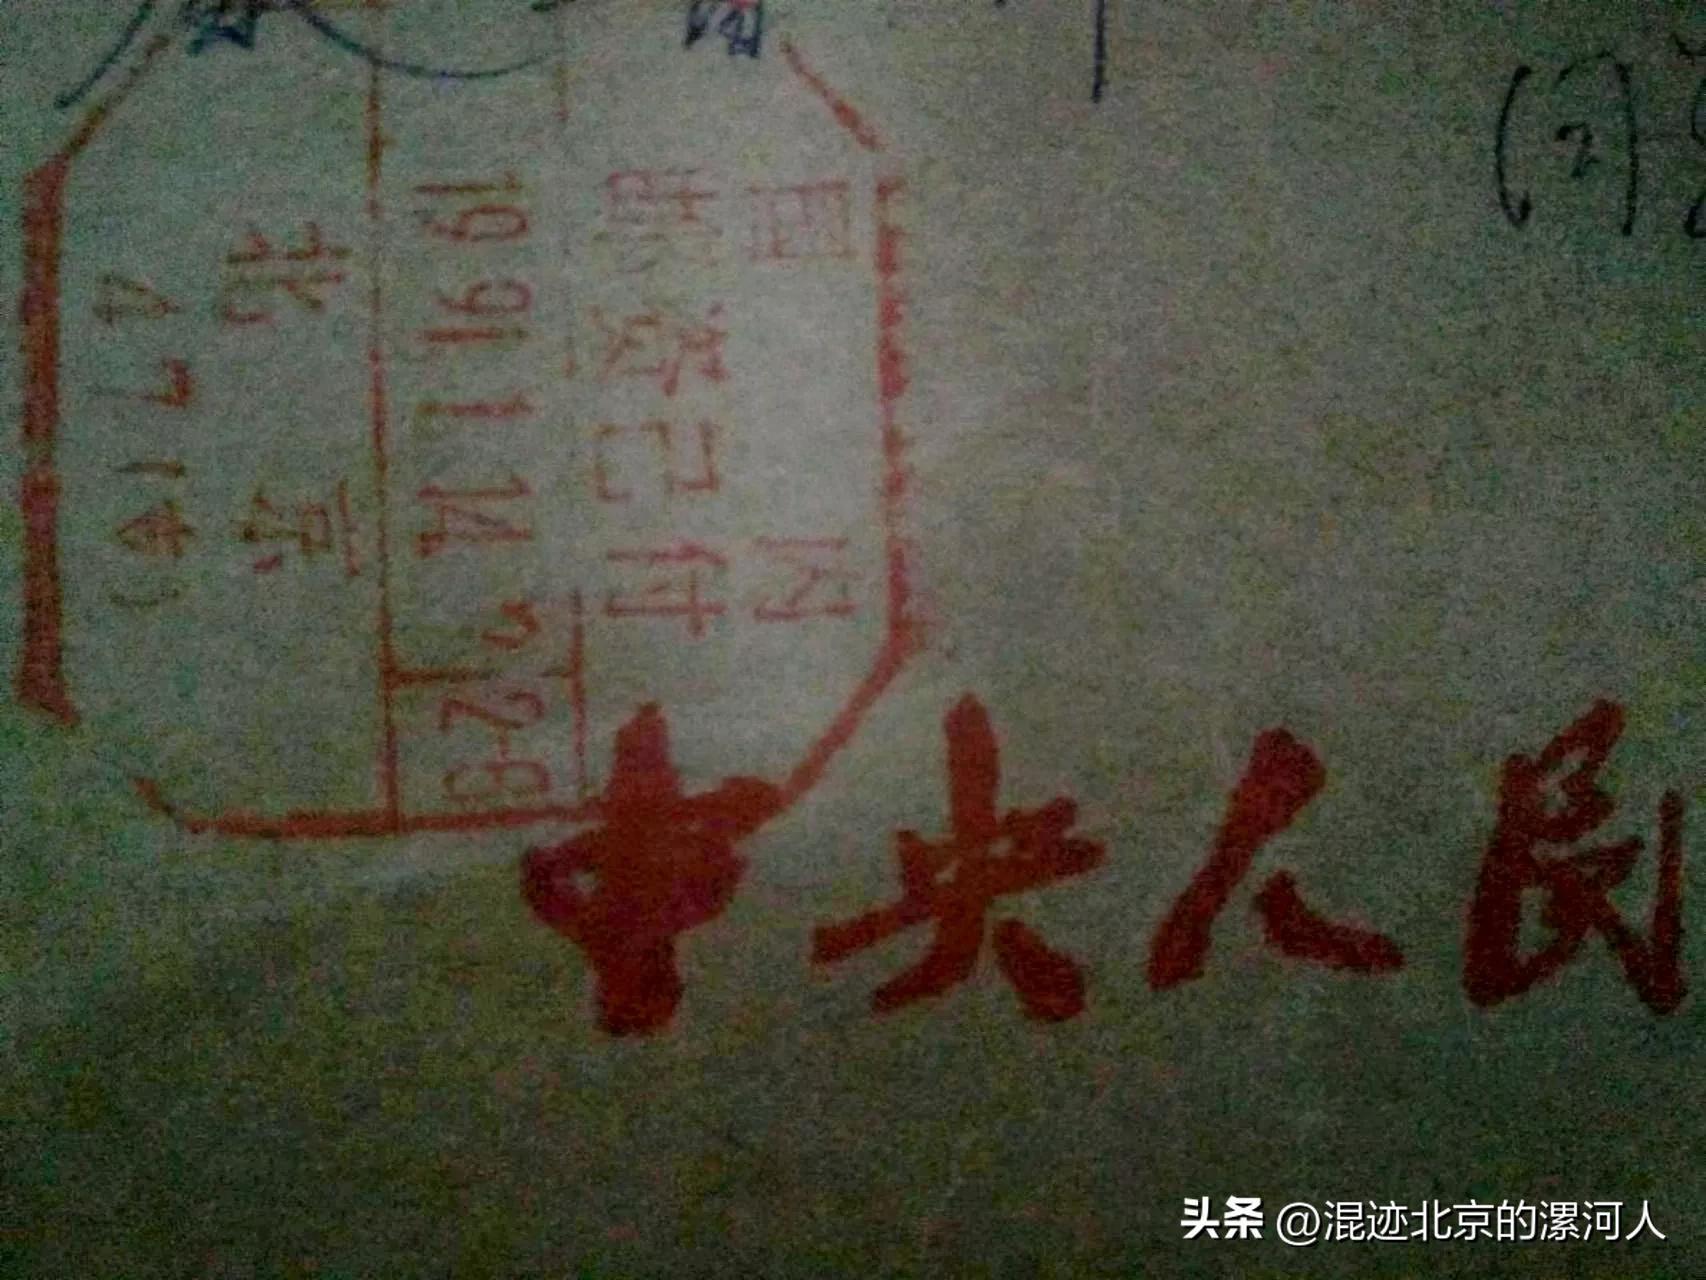 国内
邮资已付
1991.1.14
12-6
北京
(2)
中央人民
头条 @混迹北京的漯河人